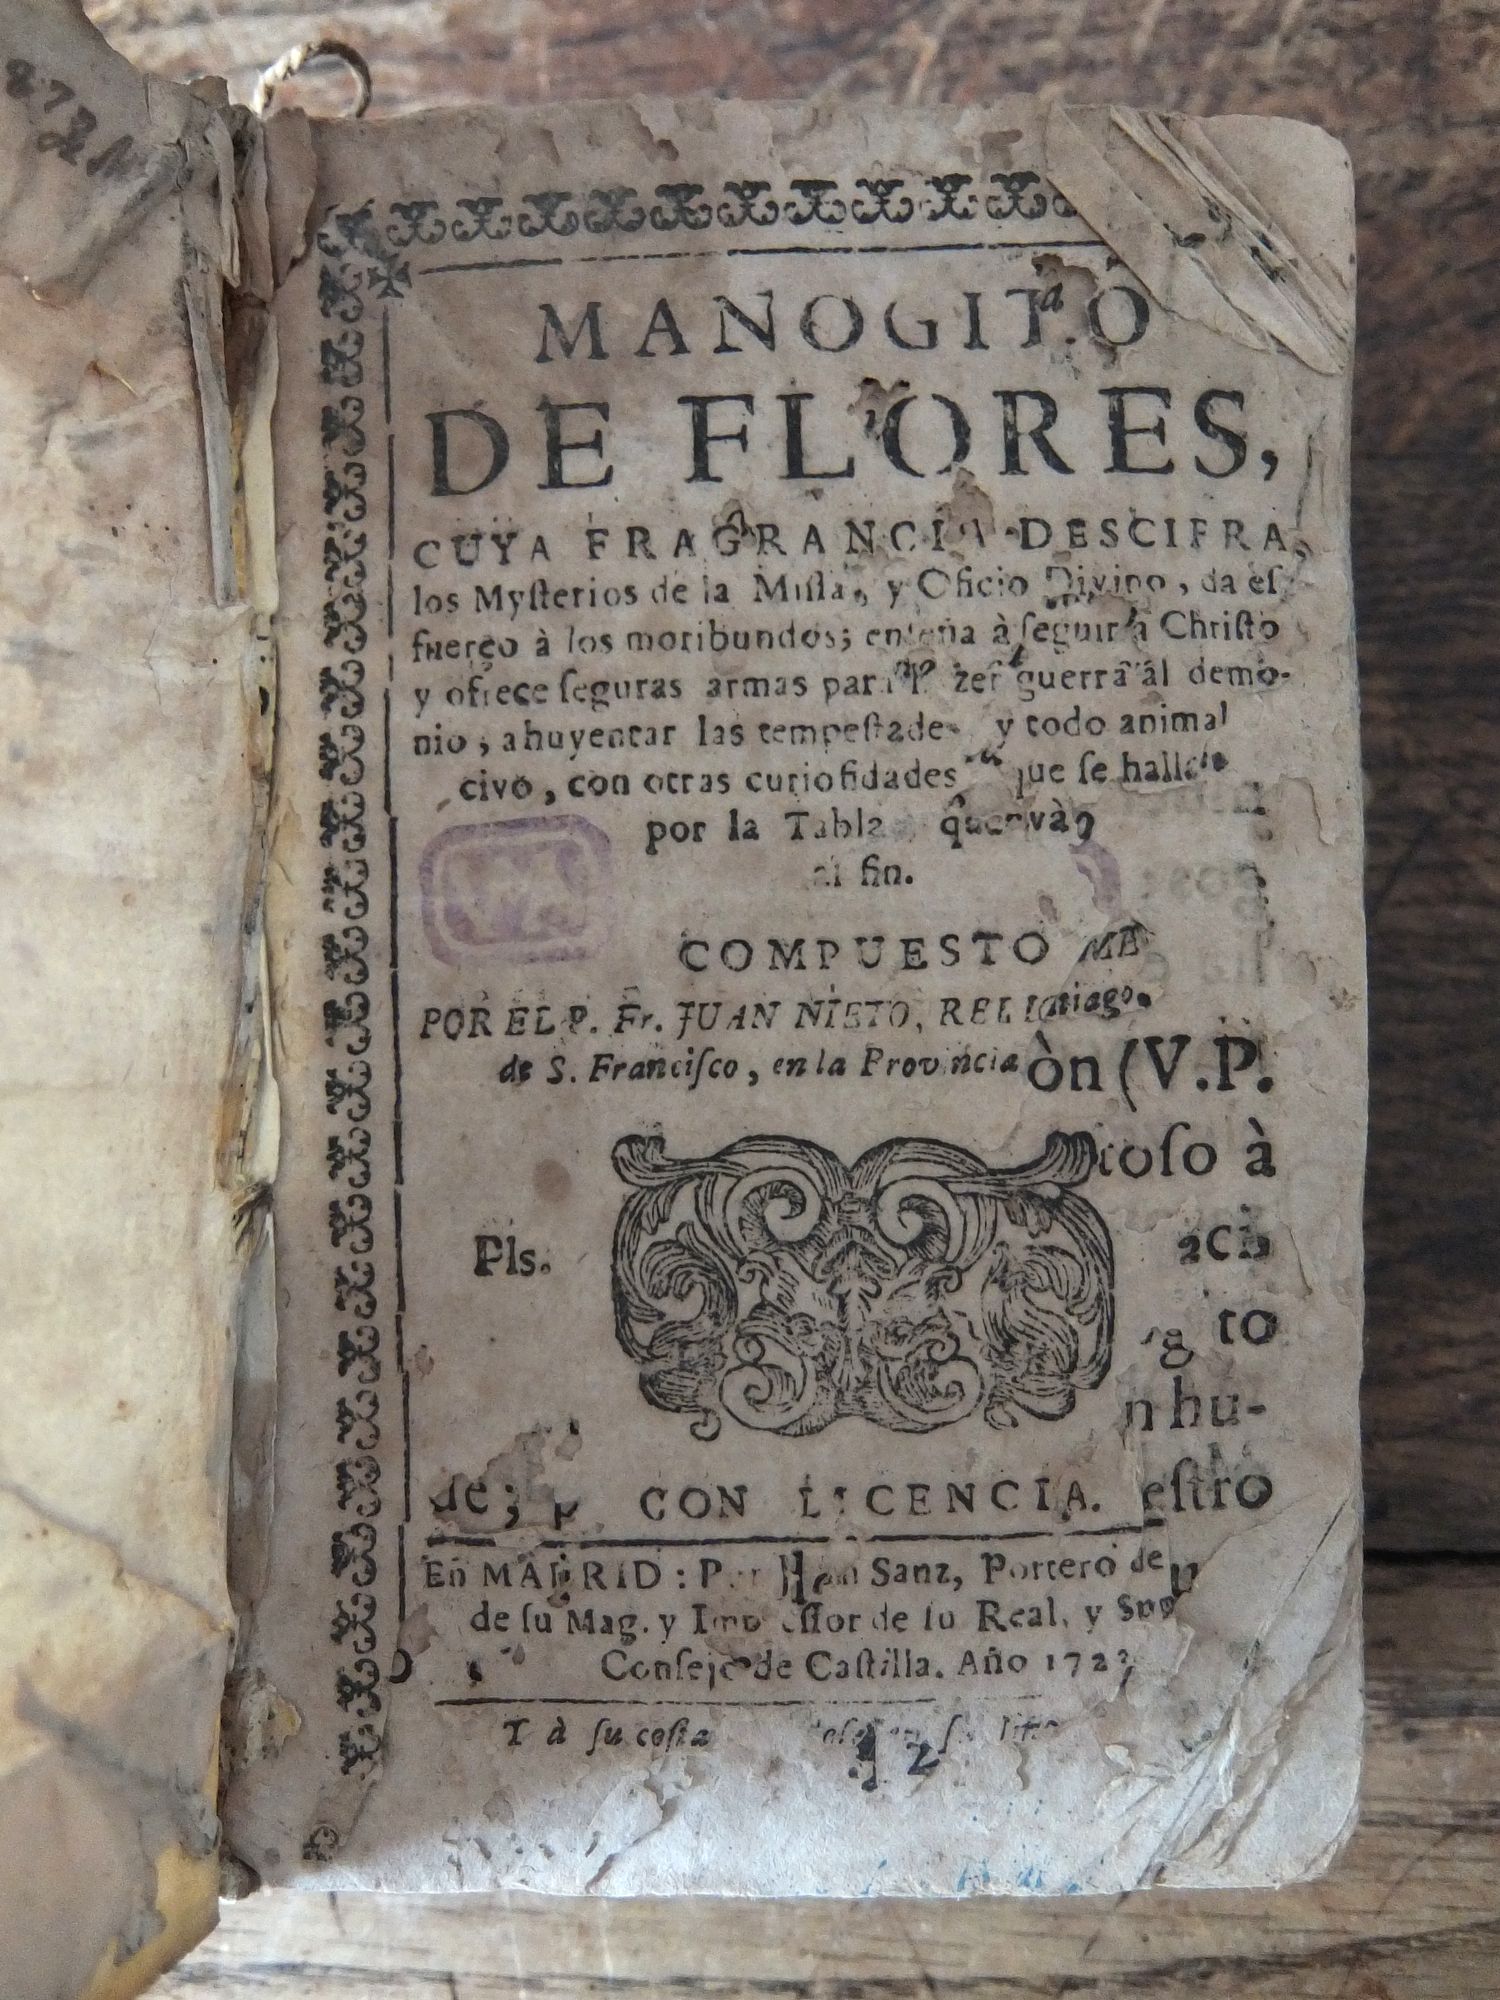 MANOGITO
DE FLORES,
CUYA FRAGRANCIA DESCIFRA,
los Myſterios de la Miſſa, y Oficio Divino, da eſ
fuerço à los moribundos; enſeña à ſeguir à Chriſto
y ofrece ſeguras armas para zer guerra al demo-
nio, ahuyentar las tempeſtades y todo animal
civo, con otras curioſidades que ſe halla
por la Tabla que và
al fin.
COMPUESTO
POR EL P. Fr. JUAN NIETO, REL
de S. Franciſco, en la Provincia
òn (V.P.
toſo à
Pls.
to
n hu-
de; CON LICENCIA. eſtro
En MADRID: Por Sanz, Portero de
de ſu Mag. y Impreſſor de ſu Real, y
Conſejo de Caſtilla. Año 172
Y à ſu coſta